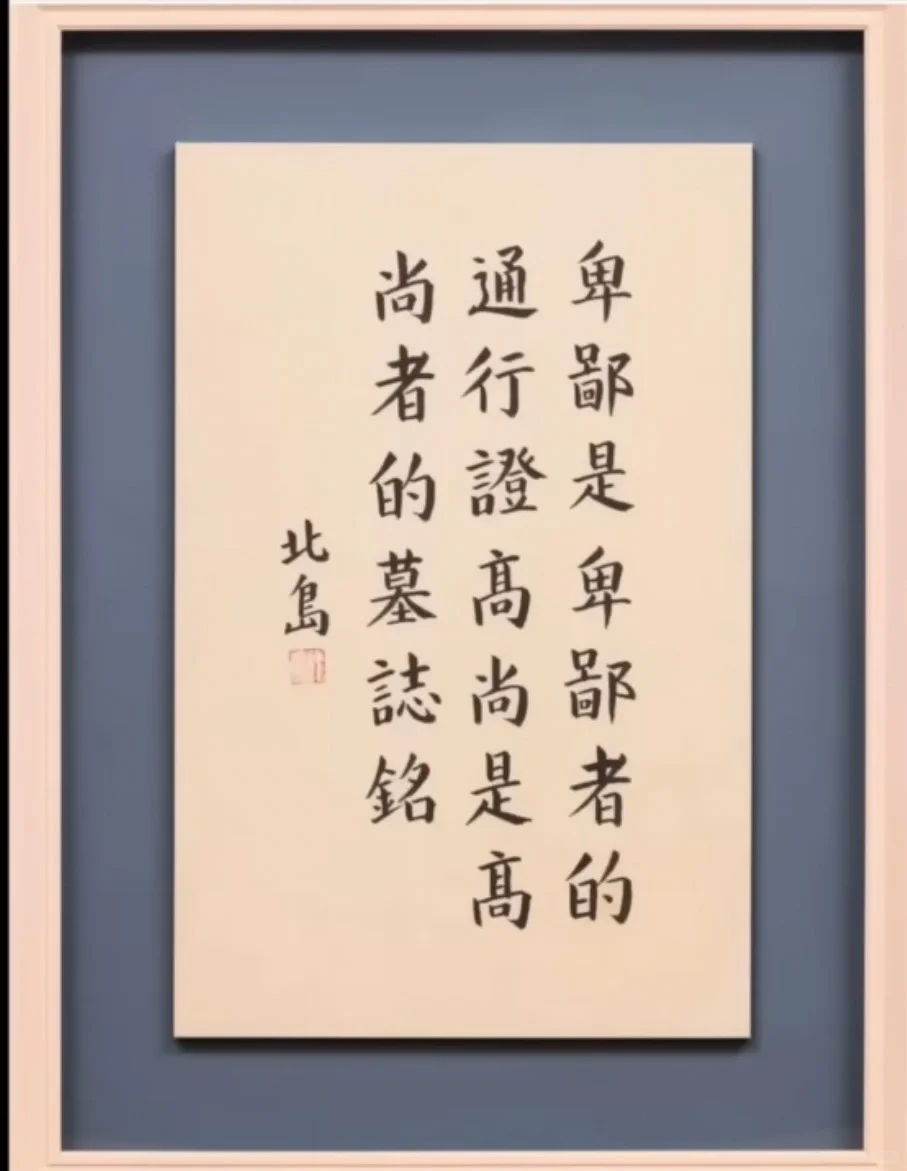 卑鄙是卑鄙者的
通行證髙尚是髙
尚者的墓誌銘
北島